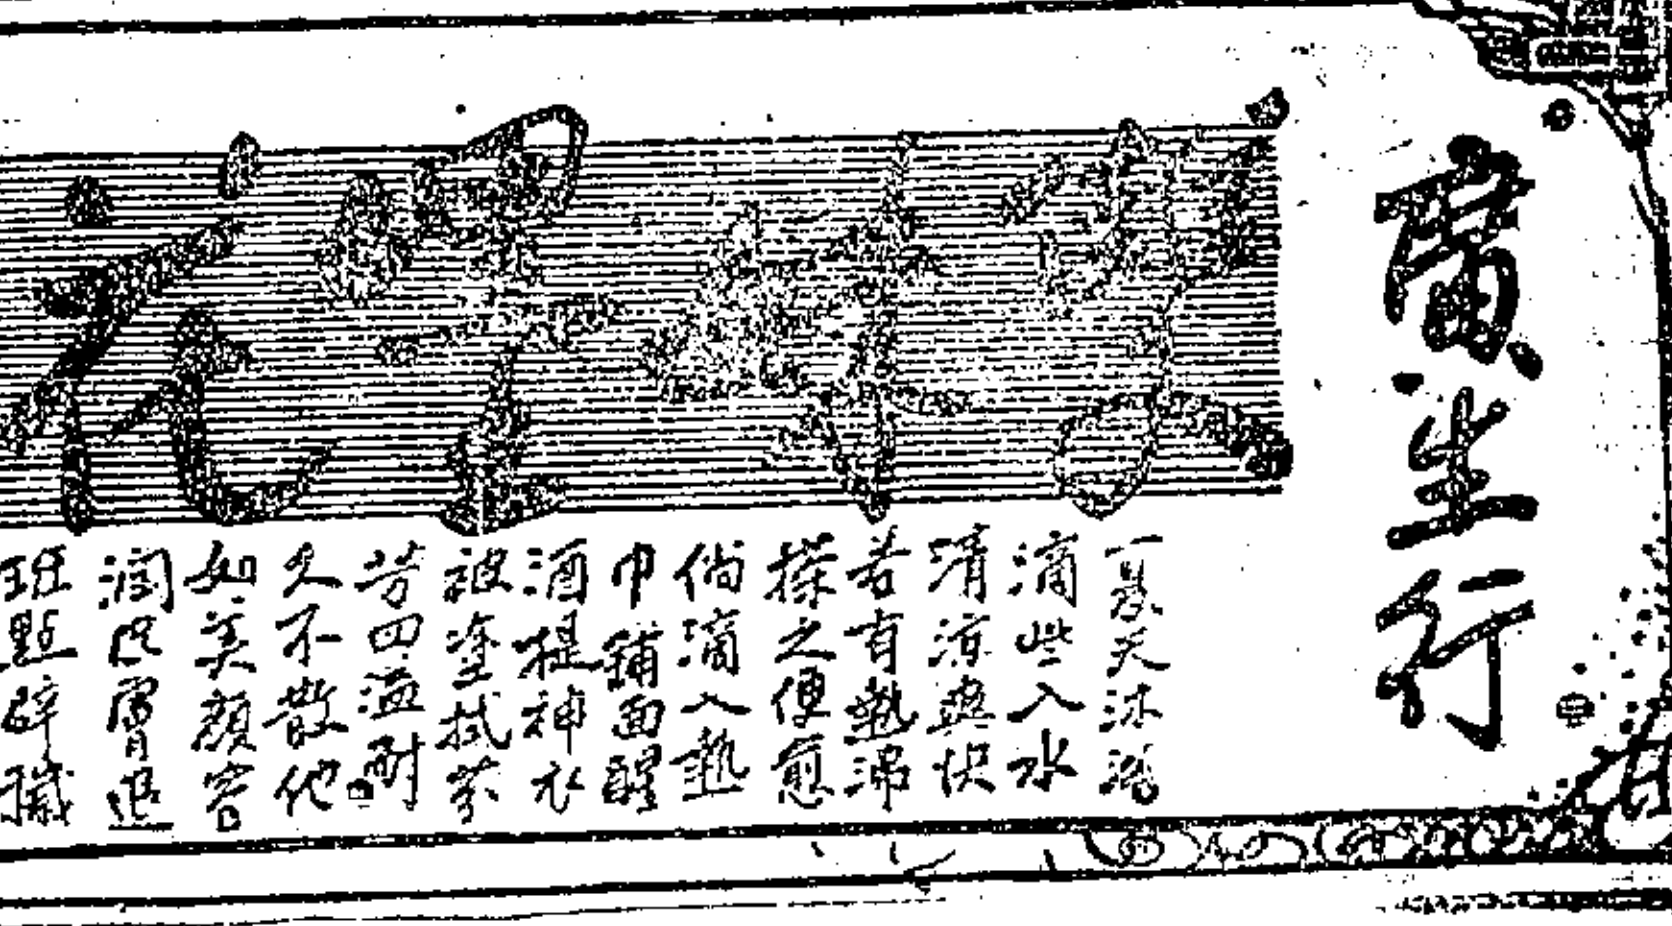 廣生行
雙妹嘜花
一夏天沐浴
滴些入水
清涼與快
若有熱沸
搽之便愈
倘滴入熱
巾鋪面醒
酒提神衣
被塗拭芬
芳四溢耐
久不散他
如美顏容
潤肌膚退
班點辟穢